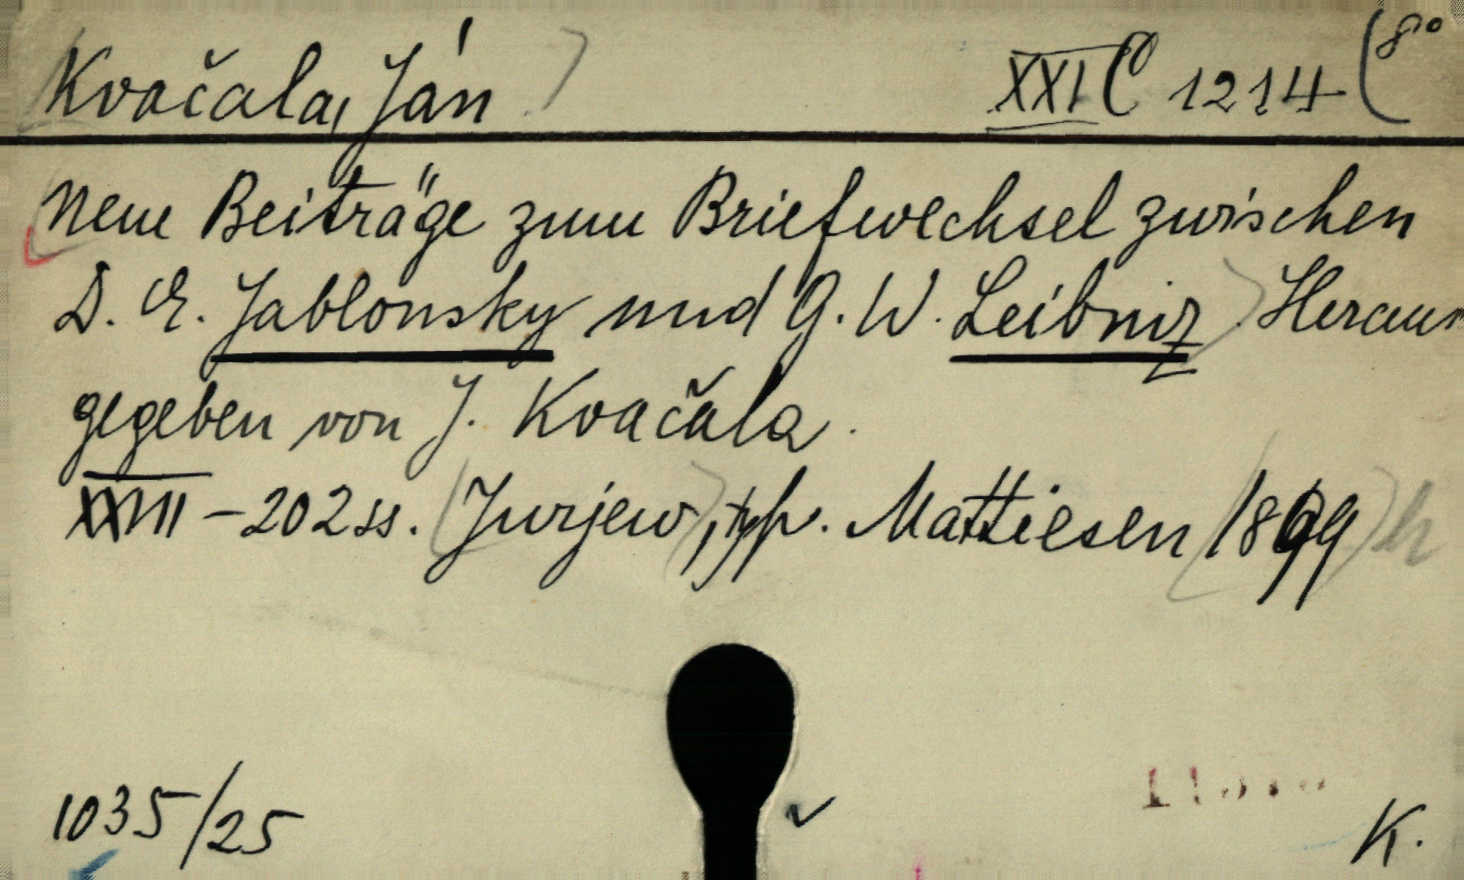 Kvačala, Ján XXI C 1214 8°
Neue Beiträge zum Briefwechsel zwischen
D. E. Jablonsky und G. W. Leibniz. Heraus
gegeben von J. Kvačala.
XXVII - 202 ss. (Jurjew), typ. Mattiesen (1899)
1035/25
K.